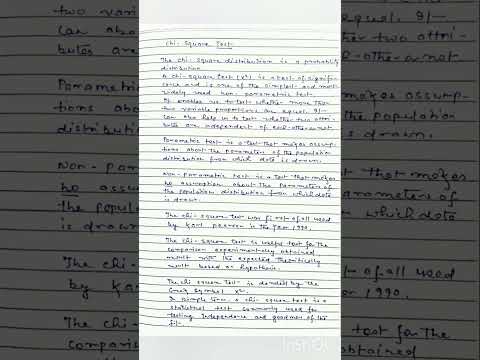 Chi-Square Test
The chi-square distribution is a probability
distribution
A chi-square test (x²) is a test of signific-
cance and is one of the simplest and most
widely used non-parametric test.
It enables us to test whether more than
two variable proportions are equal. It
can also help us to test whether two attri-
butes are independent of each-other or not
Parametric test is a test that makes assump-
tions about the parameters of the population
distribution from which data is drawn.
Non-parametric test is a test that makes
no assumption about the parameters of
the population distribution from which data
is drawn
The chi-square test was first of all used
by Karl pearson in the year 1990.
The chi-square test is useful test for the
comparison experimentally obtained
result with the expected theoritically
result based on hypothesis.
The chi square test is denoted by the
Greek symbol x².
In simple term a chi-square test is a
statistical test commonly used for
testing independence and goodness of the
fit.